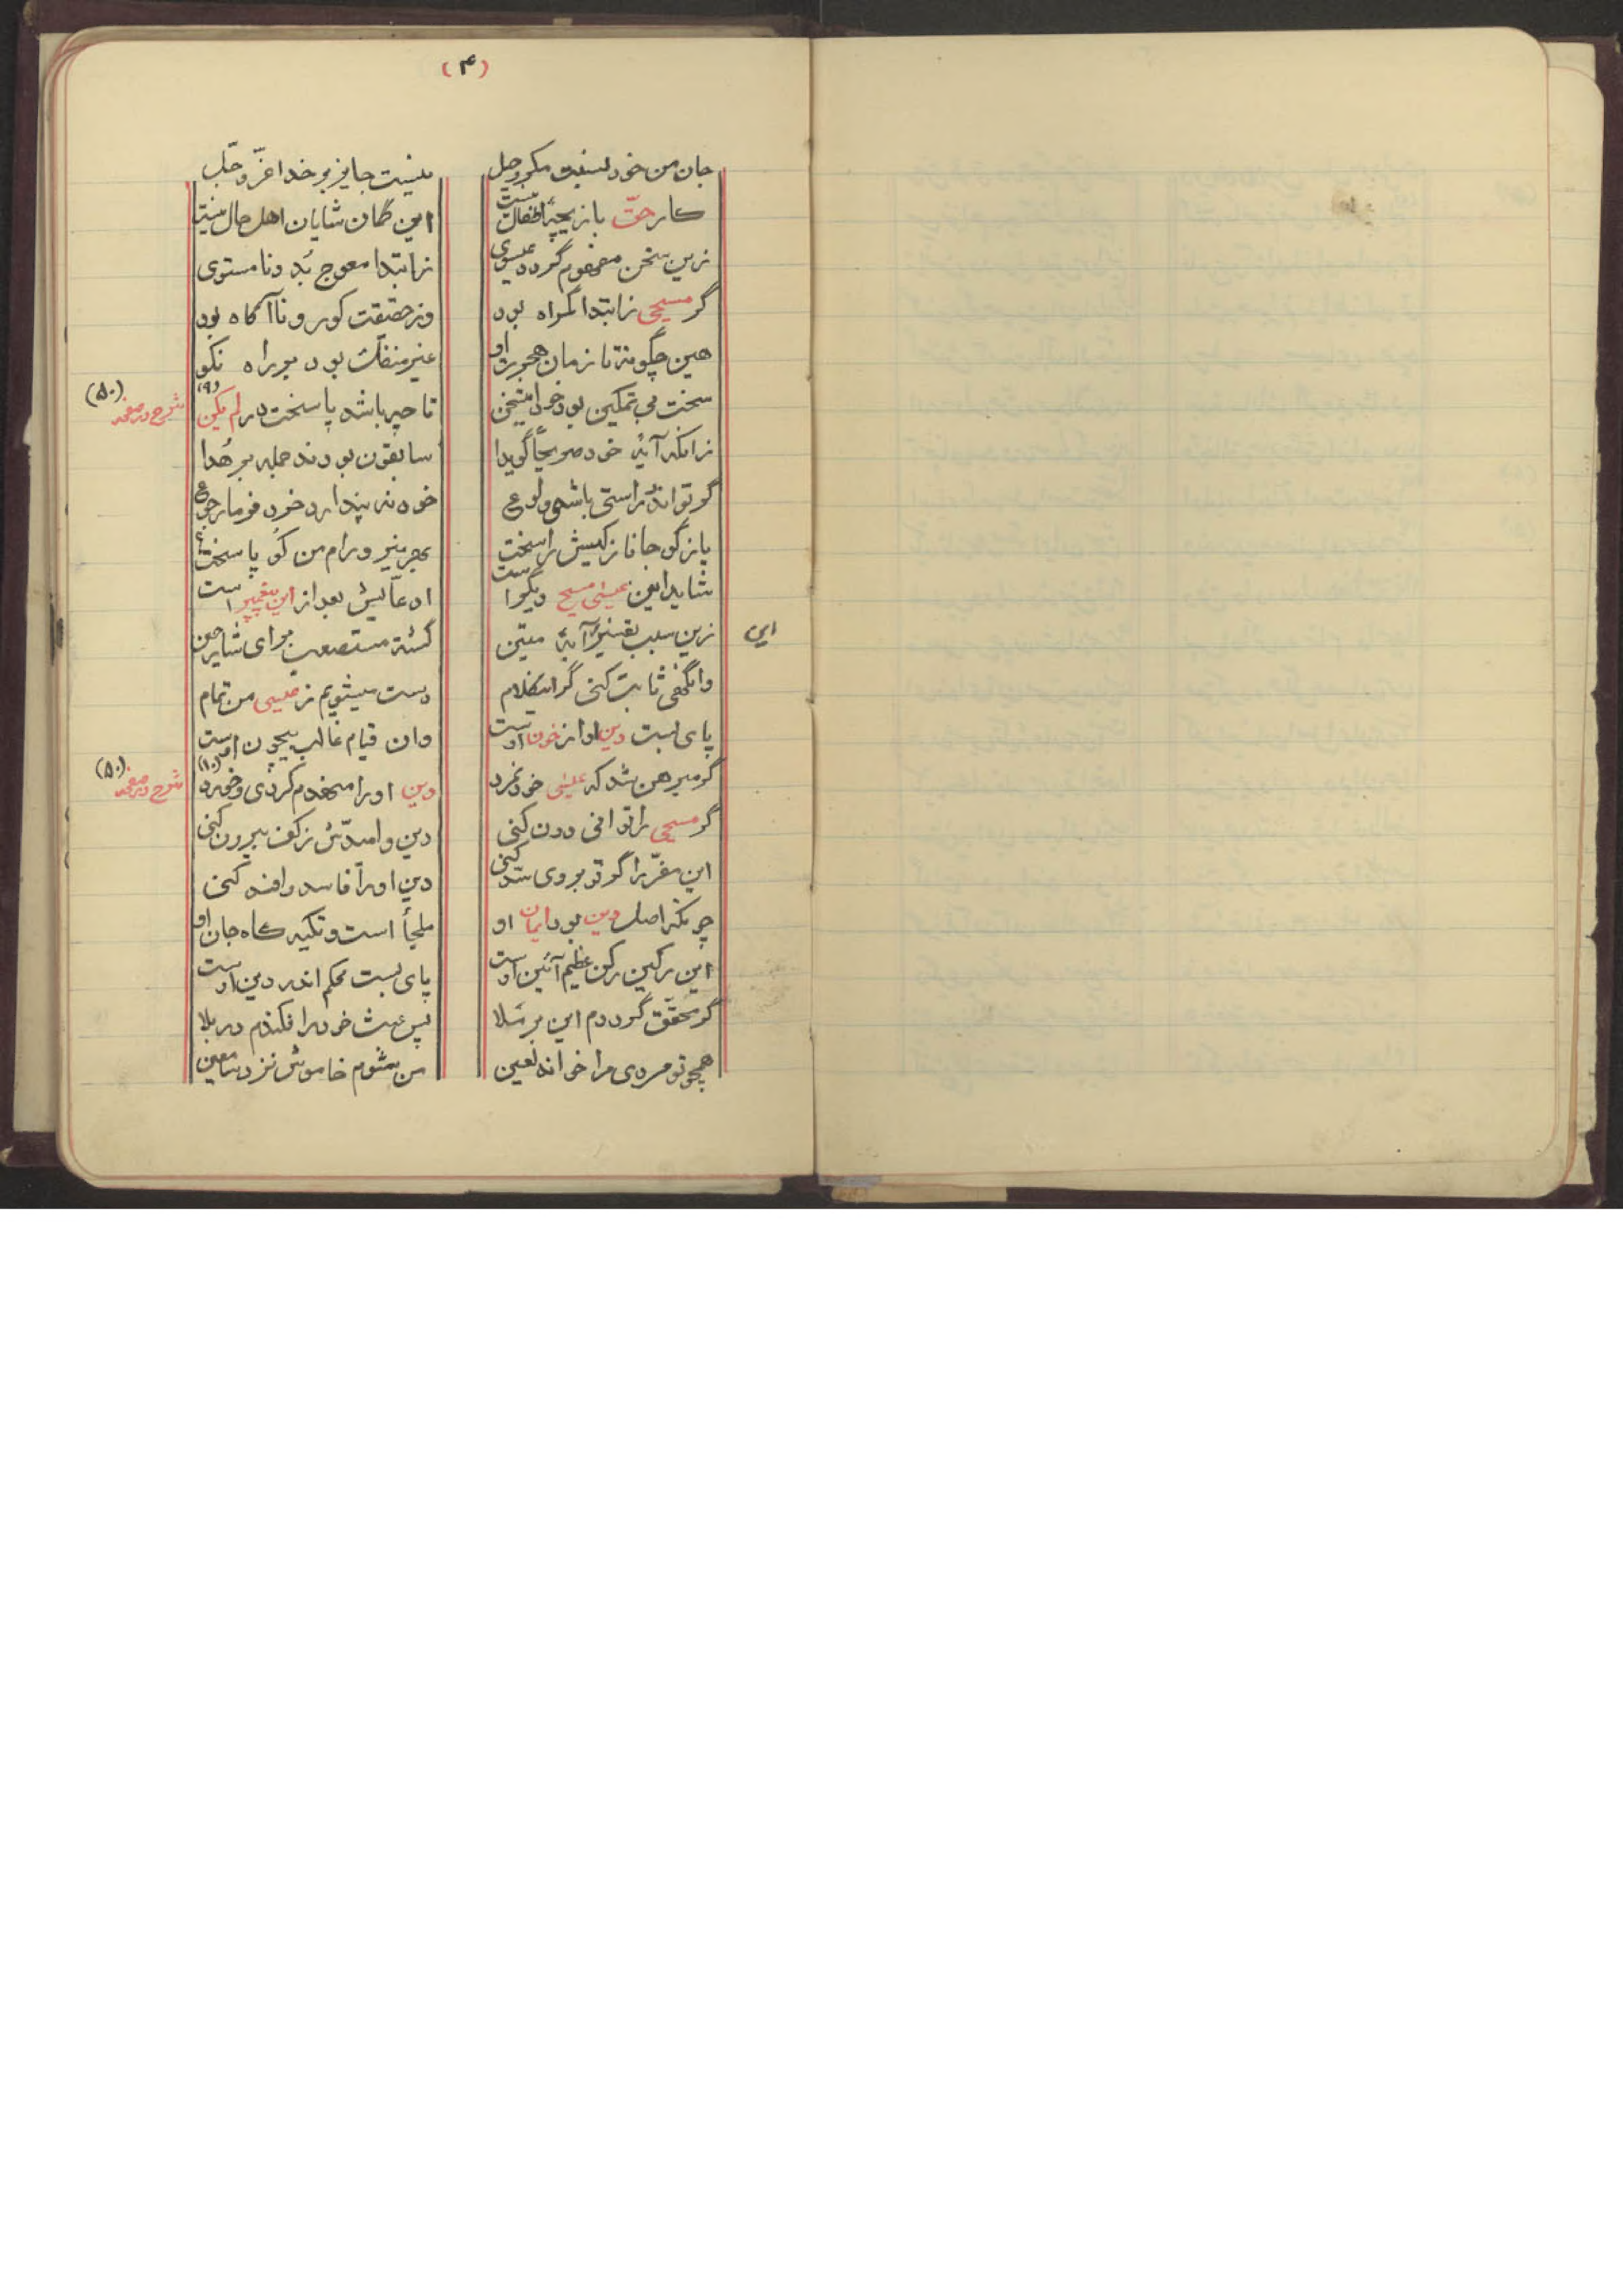 (۴)
جان من خود نسبت مکر و حیل نیست جایز بر خدا عزّ و جلّ
کار حقّ بازیچهٔ اطفال نیست این گمان شایان اهل حال نیست
زین سخن مفهوم گردد عیسوی ز ابتدا معوج بُد و نامستوی
گر مسیحی ز ابتدا گمراه بود وز حقیقت کور و ناآگاه بود
هین چگونه تا زمان هجرت او غیر منفکّ بود بر راه نکو
سخت بی تمکین بود خود این سخن تا چه باشد پاسخت در لم یکن (۹) شرح در صفحه (۵۰)
زانکه آیه خود صریحاً گوید سابقون بودند جمله بر هُدا
گر تو اندر راستی باشی ولوع خود نه پندارد خرد فرما رجوع
باز گو جانا ز کیش راسخت بهر نیرو رام من کو پاسخت
شاید این عیسی مسیح دیگر است ادعّایش بعد از این پیغمبر است
زین سبب تفسیر آیهٔ متین این گشته مستصعب برای شایرین
وانگهی ثابت کنی گر اینکلام دست میشویم ز عیسی من تمام
پای بست دین او از خون اوست وان قیام غالب بیچون اوست
گر مبرهن شد که عیسی خود نمرد دین او را منهدم کردی و خورد (۱۰) شرح در صفحه (۵۰)
گر مسیحی را توانی دون کنی دین و امیدش ز کف بیرون کنی
این مفرّ را گر تو بر وی سد کنی دین او را فاسد و افسد کنی
چونکه اصل دین بود ایمان او ملجأ است و تکیه گاه جان او
این رکین رکن عظیم آئین اوست پای بست محکم اندر دین اوست
گر محقّق گرددم این بر مَلا پس عبث خود را فکندم در بلا
همچو تو مردی مرا خواند لعین من بشوم خاموش نزد سامعین